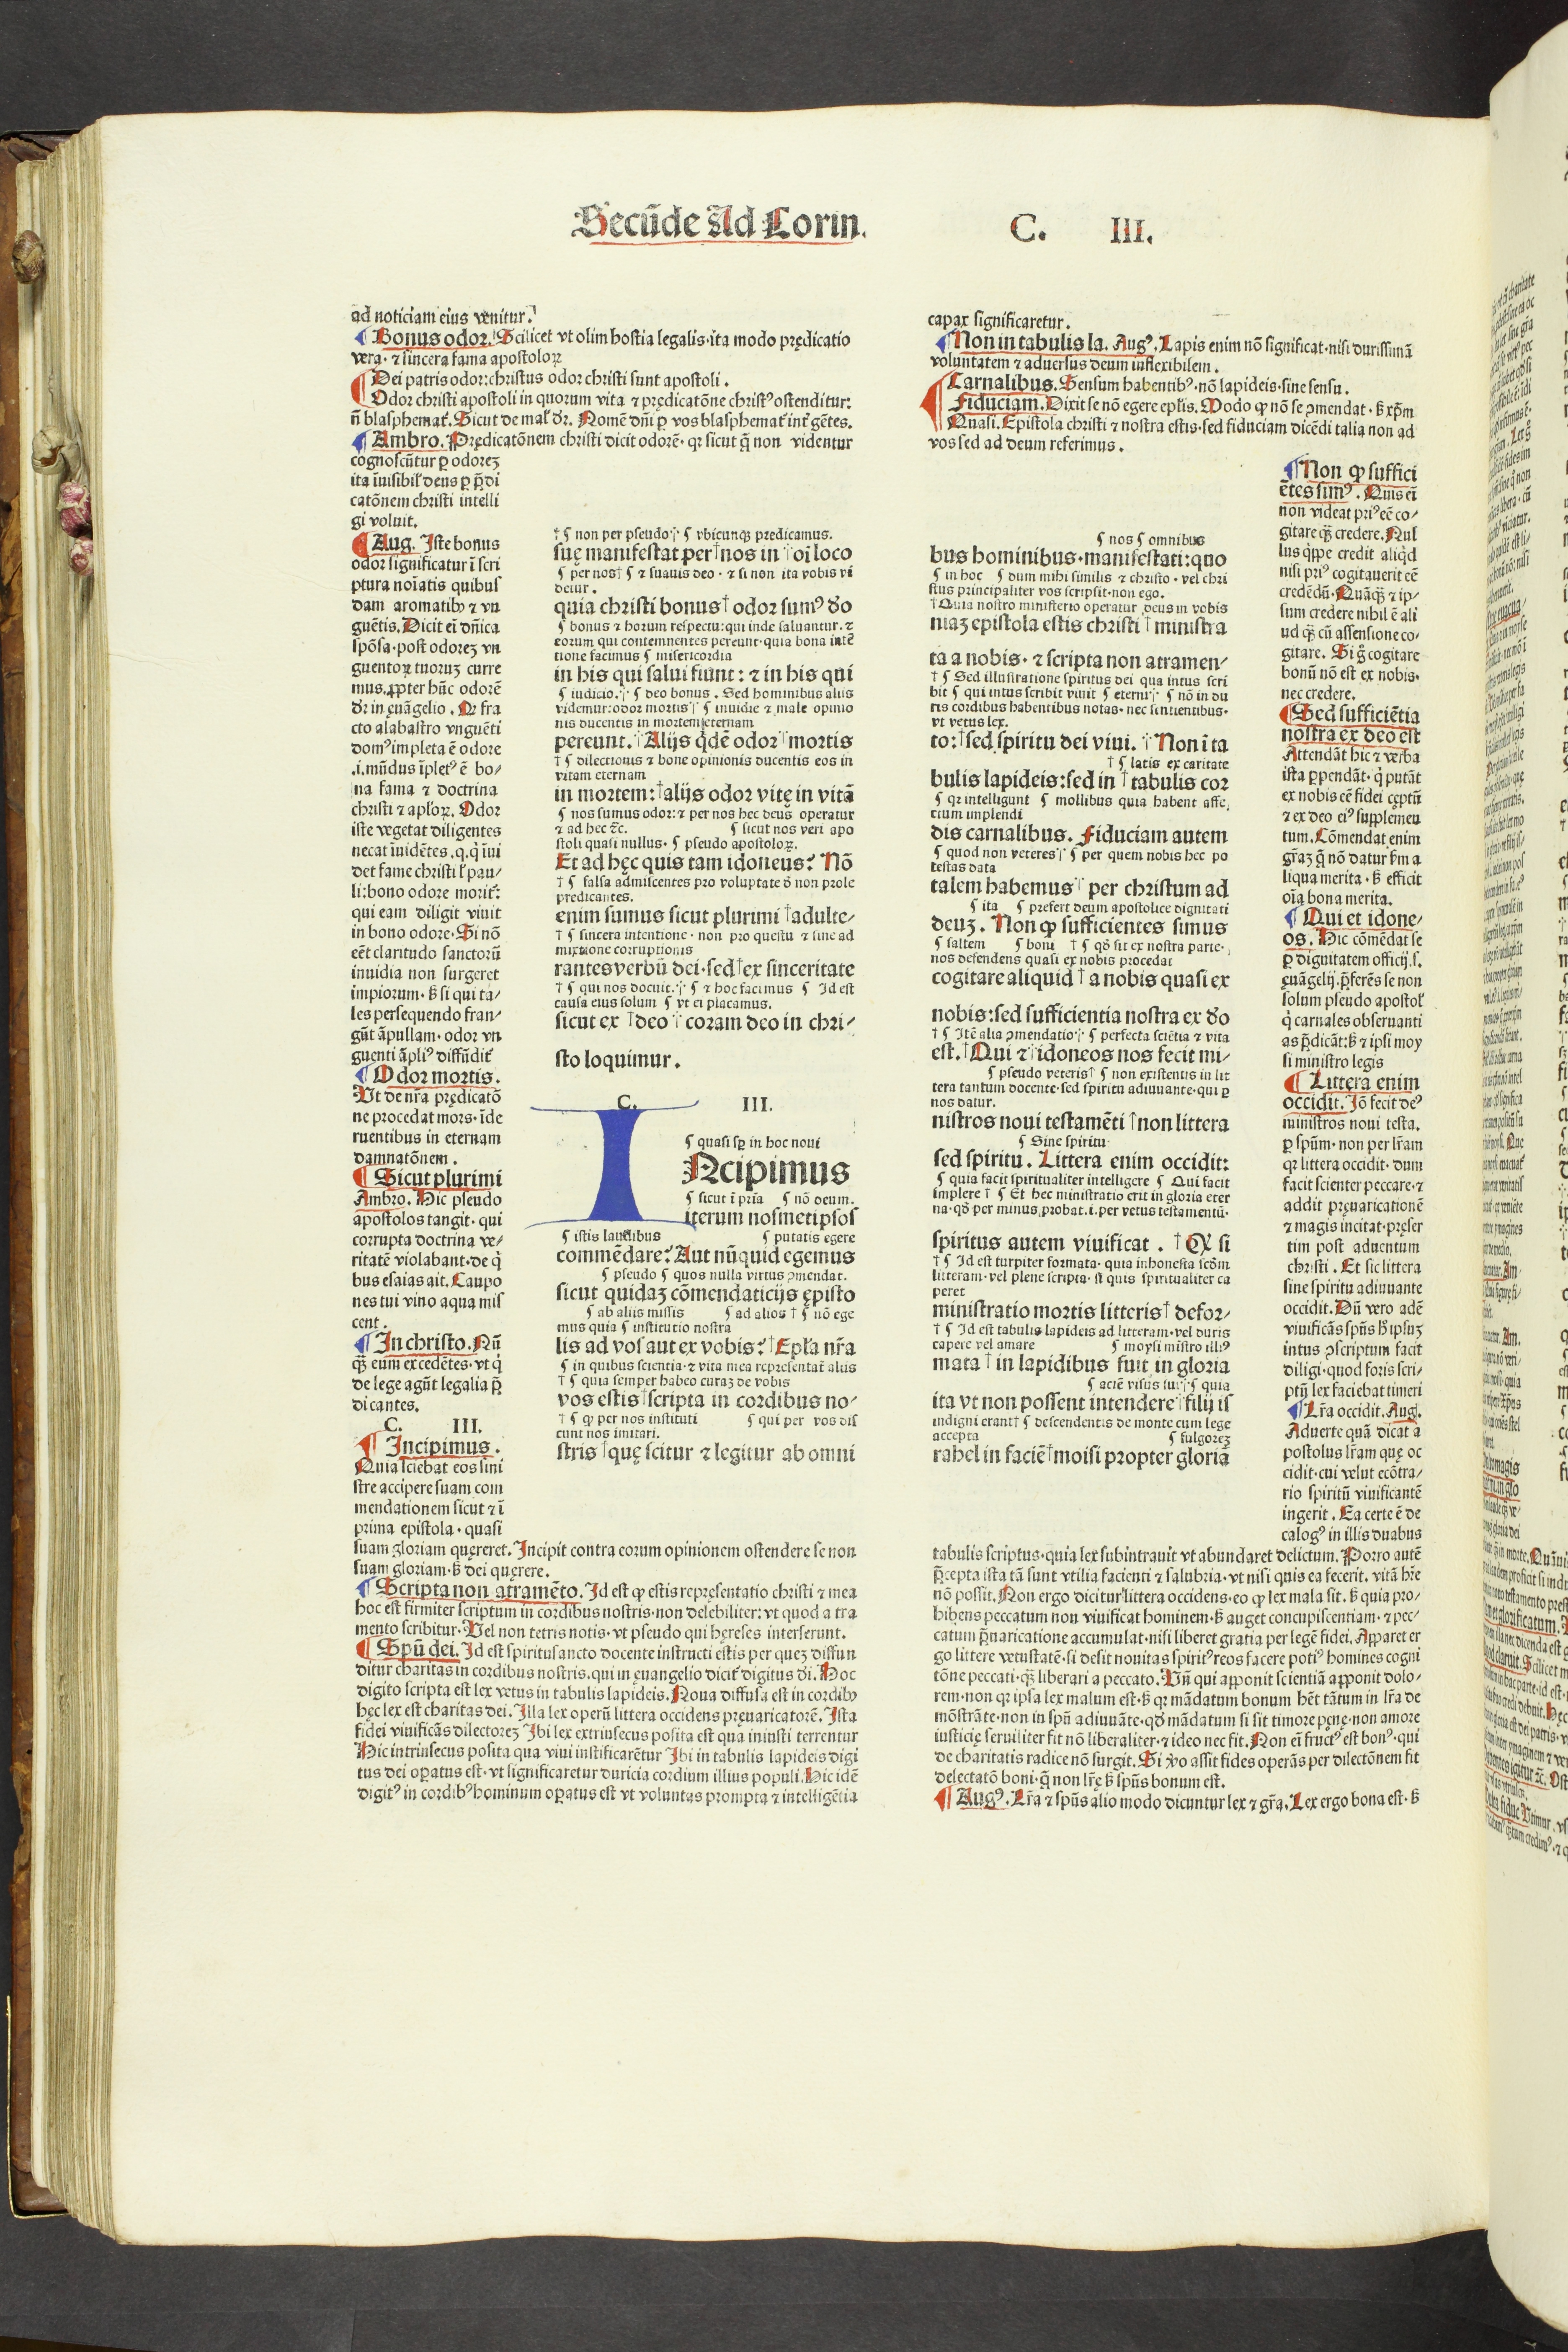 Secūde Ad Corin.
C. III.
ad noticiam eius venitur.
¶ Bonus odor. Scilicet vt olim hostia legalis·ita modo prędicatio
vera·⁊ sincera fama apostoloꝝ
¶ Dei patris odor:christus odor christi sunt apostoli.
Odor christi apostoli in quorum vita ⁊ prędicatōne christꝰ ostenditur:
¶ Ambro. Prędicatōnem christi dicit odorē· qꝛ sicut q̄ non videntur
cognoscūtur ꝑ odoreꝫ
catōnem christi intelli
gi voluit.
¶ Aug. Iste bonus
odor significatur ī scri
ptura noīatis quibus
dam aromatibꝰ ⁊ vn
guētis. Dicit eī dn̄ica
spōsa·post odoreꝫ vn
guentoꝝ tuoruꝫ curre
mus.ꝓpter hūc odorē
cto alabastro vnguēti
domꝰ impleta ē odore
.i.mūdus īpletꝰ ē bo/
na fama ⁊ doctrina
christi ⁊ apl'oꝝ. Odor
iste vegetat diligentes
det fame christi l' pau/
qui eam diligit viuit
in bono odore· Si nō
eēt claritudo sanctorū
inuidia non surgeret
les persequendo fran/
gūt āpullam·odor vn
¶ Odor mortis.
Vt de nr̄a prędicatō
ne procedat mors·īde
ruentibus in eternam
damnatōnem.
¶ Sicut plurimi
Ambro. Hic pseudo
apostolos tangit·qui
corrupta doctrina ve/
ritatē violabant·de q̄
bus esaias ait. Caupo
nes tui vino aqua mis
cent.
¶ In christo. Nū
de lege agūt legalia p̄
dicantes.
C. III.
¶ Incipimus.
Quia sciebat eos sini
stre accipere suam com
mendationem sicut ⁊ ī
prima epistola·quasi
suam gloriam quęreret. Incipit contra eorum opinionem ostendere se non
suam gloriam·ꝫ dei quęrere.
¶ Scripta non atramēto. Id est ꝙ estis repręsentatio christi ⁊ mea
hoc est firmiter scriptum in cordibus nostris·non delebiliter:vt quod a tra
mento scribitur· Vel non tetris notis·vt pseudo qui hęreses interserunt.
¶ Spū dei. Id est spiritusancto docente instructi estis per queꝫ diffun
digito scripta est lex vetus in tabulis lapideis. Noua diffusa est in cordibꝰ
hęc lex est charitas dei. Illa lex operū littera occidens pręuaricatorē. Ista
fidei viuificās dilectoreꝫ Ibi lex extrinsecus posita est qua iniusti terrentur
Hic intrinsecus posita qua viui iustificarētur Ibi in tabulis lapideis digi
tus dei oꝑatus est·vt significaretur duricia cordium illius populi. Hic idē
digitꝰ in cordibꝰ hominum oꝑatus est vt voluntas prompta ⁊ intelligētia
† ¶ non per pseudo † ¶ vbicunqꝫ predicamus.
suę manifestat per†nos in †oī loco
¶ per nos† ¶ ⁊ suauis deo·⁊ si non ita vobis vi
detur.
quia christi bonus† odor sumꝰ deo
¶ bonus ⁊ horum respectu:qui inde saluantur.⁊
eorum qui contemnentes pereunt·quia bona intē
tione facimus ¶ misericordia
in his qui salui fiunt: ⁊ in his qui
¶ iudicio.† ¶ deo bonus. Sed hominibus aliis
videmur:odor mortis† ¶ inuidie ⁊ male opinio
nis ducentis in mortem eternam
pereunt.†Alijs q̄dē odor†mortis
† ¶ dilectionis ⁊ bone opinionis ducentis eos in
vitam eternam
in mortem:†alijs odor vitę in vitā
¶ nos sumus odor:⁊ per nos hec deus operatur
⁊ ad hec ⁊c. ¶ sicut nos veri apo
stoli quasi nullus·¶ pseudo apostoloꝝ.
Et ad hęc quis tam idoneus? Nō
† ¶ falsa admiscentes pro voluptate
predicantes.
enim sumus sicut plurimi †adulte/
† ¶ sincera intentione·non pro questu ⁊ sine ad
mixtione corruptionis
rantes verbū dei·sed†ex sinceritate
† ¶ qui nos docuit.† ¶ ⁊ hoc facimus ¶ Id est
causa eius solum ¶ vt ei placamus.
sicut ex †deo† coram deo in chri/
sto loquimur.
C. III.
¶ quasi sꝑ in hoc noui
INcipimus
¶ sicut ī pria ¶ nō deum.
iterum nosmetipsos
¶ istis laudibus ¶ putatis egere
commēdare? Aut nūquid egemus
¶ pseudo ¶ quos nulla virtus ꝯmendat.
sicut quidaꝫ cōmendaticijs ępisto
¶ ab aliis missis ¶ ad alios † ¶ nō ege
mus quia ¶ institutio nostra
lis ad vos aut ex vobis?†Epl'a nr̄a
¶ in quibus scientia·⁊ vita mea representat̄ aliis
† ¶ quia semper habeo curaꝫ de vobis
vos estis†scripta in cordibus no-
† ¶ ꝙ per nos instituti ¶ qui per vos dis
cunt nos imitari.
stris †quę scitur ⁊ legitur ab omni
capax significaretur.
¶ Non in tabulis la. Augꝰ. Lapis enim nō significat·nisi durissimā
voluntatem ⁊ aduersus deum inflexibilem.
¶ Carnalibus. Sensum habentibꝰ·nō lapideis·sine sensu.
Fiduciam. Dixit se nō egere epl'is. Modo ꝙ nō se ꝯmendat·ꝫ xp̄m
Quasi. Epistola christi ⁊ nostra estis·sed fiduciam dicēdi talia non ad
vos sed ad deum referimus.
¶ nos ¶ omnibus
bus hominibus·manifestati:quo
¶ in hoc ¶ dum mihi similis ⁊ christo·vel chri
stus principaliter vos scripsit·non ego.
†Quia nostro ministerio operatur deus in vobis
niaꝫ epistola estis christi †ministra
ta a nobis·⁊ scripta non atramen/
† ¶ Sed illustratione spiritus dei qua intus scri
bit ¶ qui intus scribit viuit ¶ eterni† ¶ nō in du
ris cordibus habentibus notas·nec sintientibus·
vt vetus lex.
to:†sed spiritu dei viui. †Non ī ta
† ¶ latis ex caritate
bulis lapideis:sed in †tabulis cor
¶ qꝛ intelligunt ¶ mollibus quia habent affe,
ctum implendi
dis carnalibus. Fiduciam autem
¶ quod non veteres† ¶ per quem nobis hec po
testas data
talem habemus† per christum ad
¶ ita ¶ prefert deum apostolice dignitati
deuꝫ. Non ꝙ sufficientes simus
¶ saltem ¶ boni † ¶ qd̄ sit ex nostra parte·
nos defendens quasi ex nobis procedat
cogitare aliquid †a nobis quasi ex
nobis:sed sufficientia nostra ex deo
† ¶ Itē alia ꝯmendatio† ¶ perfecta sciētia ⁊ vita
est.†Qui ⁊†idoneos nos fecit mi-
¶ pseudo veteris† ¶ non existentis in lit
tera tantum docente·sed spiritu adiuuante·qui ꝑ
nos datur.
nistros noui testamēti †non littera
¶ Sine spiritu
sed spiritu. Littera enim occidit:
¶ quia facit spiritualiter intelligere ¶ Qui facit
implere † ¶ Et hec ministratio erit in gloria eter
na·qd̄ per minus probat.i.per vetus testamentū·
spiritus autem viuificat. †Qꝙ si
† ¶ Id est turpiter formata·quia inhonesta scd̄m
litteram·vel plene scripta·si quis spiritualiter ca
peret
ministratio mortis litteris† defor-
† ¶ Id est tabulis lapideis ad litteram·vel duris
capere vel amare ¶ moysi mīstro illiꝰ
mata †in lapidibus fuit in gloria
¶ aciē visus sui† ¶ quia
ita vt non possent intendere†filij is
indigni erant† ¶ descendentis de monte cum lege
accepta ¶ fulgoreꝫ
rahel in faciē†moisi propter gloriā
¶ Non ꝙ suffici
ētes simꝰ. Quis eī
non videat priꝰ eē co/
gitare qꝫ credere. Nul
lus q̄ppe credit aliq̄d
nisi priꝰ cogitauerit eē
credēdū· Quāqꝫ ⁊ ip/
sum credere nihil ē ali
ud qꝫ cū assensione co/
gitare. Si g° cogitare
bonū nō est ex nobis·
nec credere.
¶ Sed sufficiētia
nostra ex deo est
Attendāt hic ⁊ verba
ista ꝑpendāt·q̄ putāt
ex nobis eē fidei cęptū
⁊ ex deo eiꝰ supplemen
tum. Cōmendat enim
gr̄aꝫ q̄ nō datur ꝫm a
liqua merita·ꝫ efficit
oīa bona merita.
¶ Qui et idone/
os. Hic cōmēdat se
ꝑ dignitatem officij.s.
ęuāgelij.p̄ferēs se non
solum pseudo apostol'
q̄ carnales obseruanti
as p̄dicāt:ꝫ ⁊ ipsi moy
si ministro legis
¶ Littera enim
occidit. Iō fecit deꝰ
ministros noui testa.
ꝑ spūm·non per lr̄am
qꝛ littera occidit·dum
facit scienter peccare·⁊
addit pręuaricationē
⁊ magis incitat·pręser
tim post aduentum
christi. Et sic littera
sine spiritu adiuuante
occidit. Dū vero adē
intus ꝯscriptum facit
diligi·quod foris scri/
ptū lex faciebat timeri
¶ Lr̄a occidit. Aug.
Aduerte quā dicat a
postolus lr̄am quę oc
cidit·cui velut ecōtra/
rio spiritū viuificantē
ingerit. Ea certe ē de
calogꝰ in illis duabus
tabulis scriptus·quia lex subintrauit vt abundaret delictum. Porro autē
p̄cepta ista tā sunt vtilia facienti ⁊ salubria·vt nisi quis ea fecerit·vitā hr̄e
nō possit. Non ergo dicitur littera occidens·eo ꝙ lex mala sit·ꝫ quia pro/
hibens peccatum non viuificat hominem·ꝫ auget concupiscentiam·⁊ pec/
catum p̄uaricatione accumulat·nisi liberet gratia per legē fidei. Apparet er
go littere vetustatē·si desit nouitas spiritꝰ reos facere potiꝰ homines cogni
tōne peccati·qꝫ liberari a peccato. Vn̄ qui apponit scientiā apponit dolo/
rem·non qꝛ ipsa lex malum est·ꝫ qꝛ mādatum bonum hēt tātum in lr̄a de
mōstrāte·non in spū adiuuāte·qd̄ mādatum si sit timore pęnę·non amore
iusticię seruiliter fit nō liberaliter·⁊ ideo nec fit. Non eī fructꝰ est bonꝰ·qui
de charitatis radice nō surgit. Si vo assit fides operās per dilectōnem fit
delectatō boni·q̄ non lr̄ę ꝫ spūs bonum est.
¶ Augꝰ. Lr̄a ⁊ spūs alio modo dicuntur lex ⁊ gr̄a. Lex ergo bona est·ꝫ